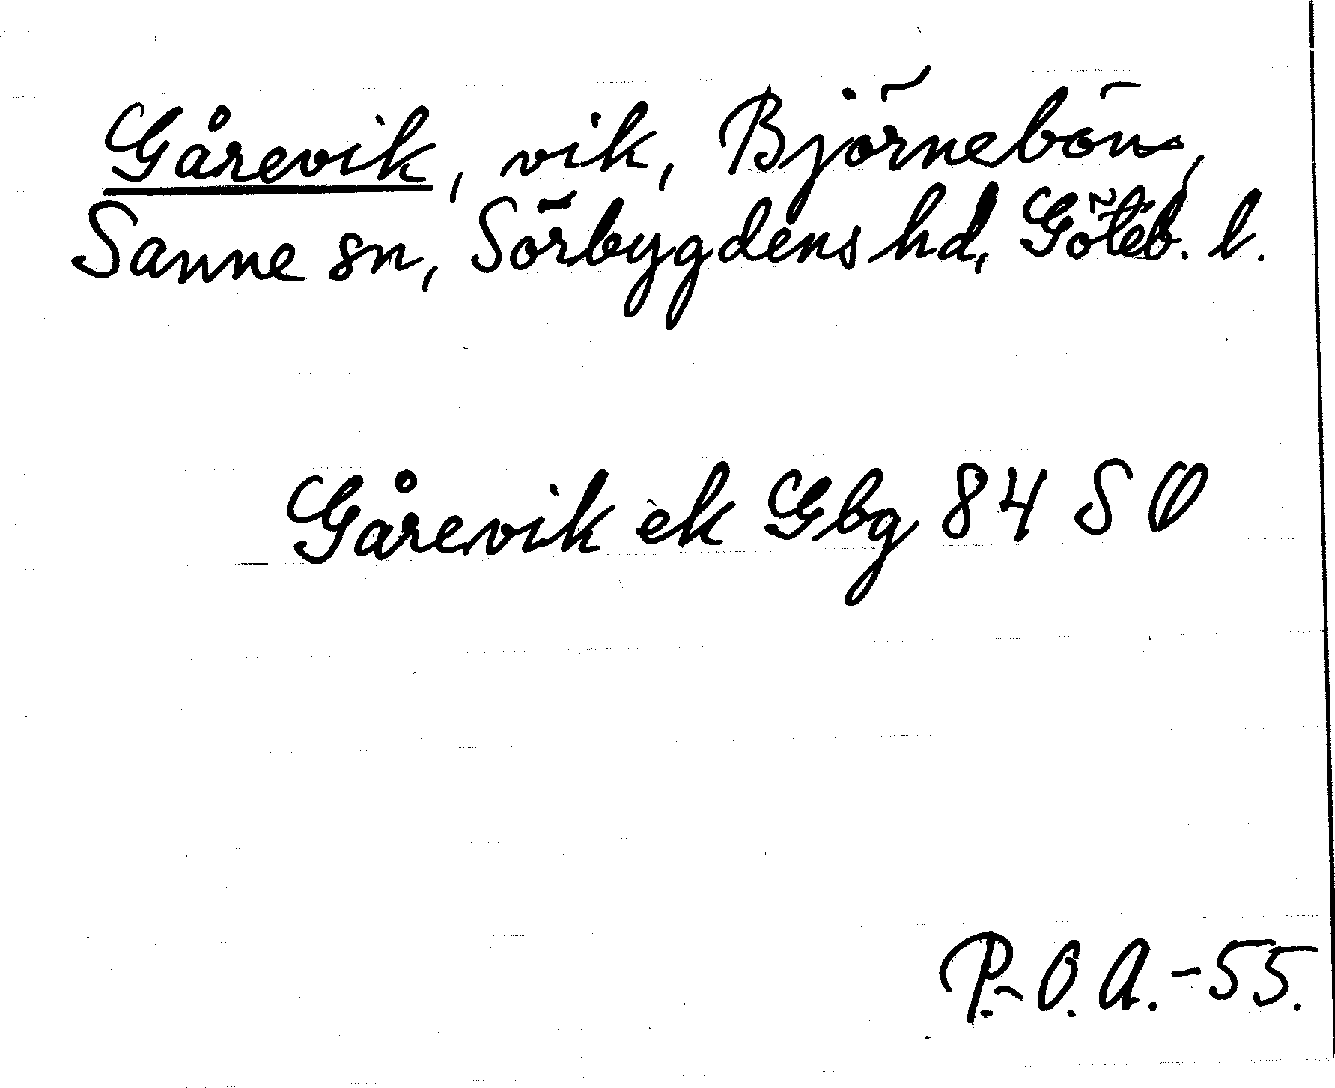 Gårevik, vik, Björnebön,
Sanne sn, Sörbygdens hd, Göteb. l.
Gårevik ek Gbg 84 SO
P.-O. A. -55.